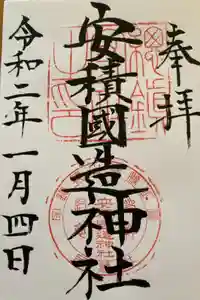 奉拝
安積國造神社
令和二年一月四日